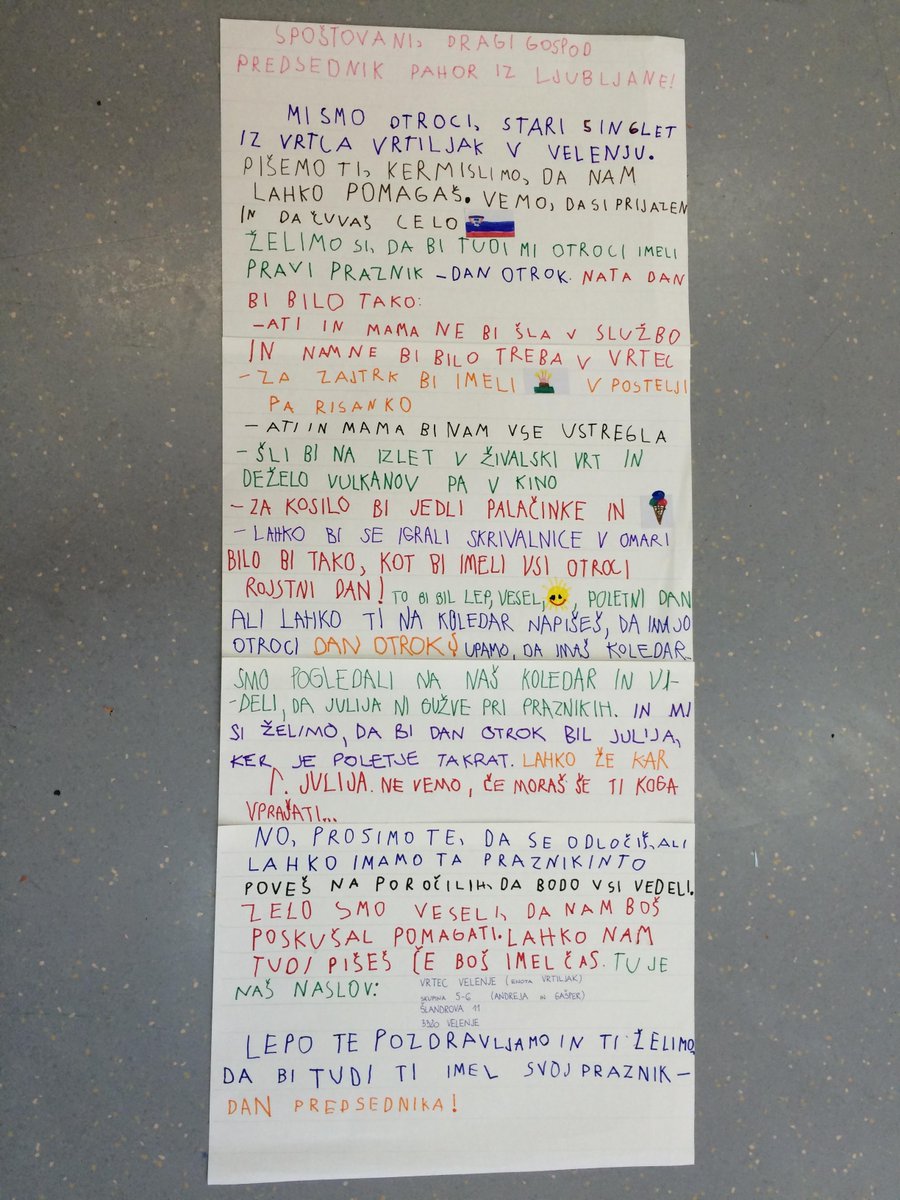 SPOŠTOVANI, DRAGI GOSPOD
PREDSEDNIK PAHOR IZ LJUBLJANE!
MI SMO OTROCI, STARI 5 IN 6 LET
IZ VRTCA VRTILJAK V VELENJU.
PIŠEMO TI, KER MISLIMO, DA NAM
LAHKO POMAGAŠ. VEMO, DA SI PRIJAZEN
IN DA ČUVAŠ CELO
ŽELIMO SI, DA BI TUDI MI OTROCI IMELI
PRAVI PRAZNIK - DAN OTROK. NA TA DAN
BI BILO TAKO:
- ATI IN MAMA NE BI ŠLA V SLUŽBO
IN NAM NE BI BILO TREBA V VRTEC
- ZA ZAJTRK BI IMELI V POSTELJI
PA RISANKO
- ATI IN MAMA BI NAM VSE USTREGLA
- ŠLI BI NA IZLET V ŽIVALSKI VRT IN
DEŽELO VULKANOV PA V KINO
- ZA KOSILO BI JEDLI PALAČINKE IN
- LAHKO BI SE IGRALI SKRIVALNICE V OMARI
BILO BI TAKO, KOT BI IMELI VSI OTROCI
ROJSTNI DAN! TO BI BIL LEP, VESEL, , POLETNI DAN
ALI LAHKO TI NA KOLEDAR NAPIŠEŠ, DA IMAJO
OTROCI DAN OTROK? UPAMO, DA IMAŠ KOLEDAR.
SMO POGLEDALI NA NAŠ KOLEDAR IN VI-
-DELI, DA JULIJA NI GUŽVE PRI PRAZNIKIH. IN MI
SI ŽELIMO, DA BI DAN OTROK BIL JULIJA,
KER JE POLETJE TAKRAT. LAHKO ŽE KAR
1. JULIJA. NE VEMO, ČE MORAŠ ŠE TI KOGA
VPRAŠATI...
NO, PROSIMO TE, DA SE ODLOČIŠ, ALI
LAHKO IMAMO TA PRAZNIK IN TO
POVEŠ NA POROČILIH, DA BODO VSI VEDELI.
ZELO SMO VESELI, DA NAM BOŠ
POSKUŠAL POMAGATI. LAHKO NAM
TUDI PIŠEŠ ČE BOŠ IMEL ČAS. TU JE
NAŠ NASLOV:
VRTEC VELENJE (ENOTA VRTILJAK)
SKUPINA 5-6 (ANDREJA IN GAŠPER)
ŠLANDROVA 11
3320 VELENJE
LEPO TE POZDRAVLJAMO IN TI ŽELIMO,
DA BI TUDI TI IMEL SVOJ PRAZNIK -
DAN PREDSEDNIKA!